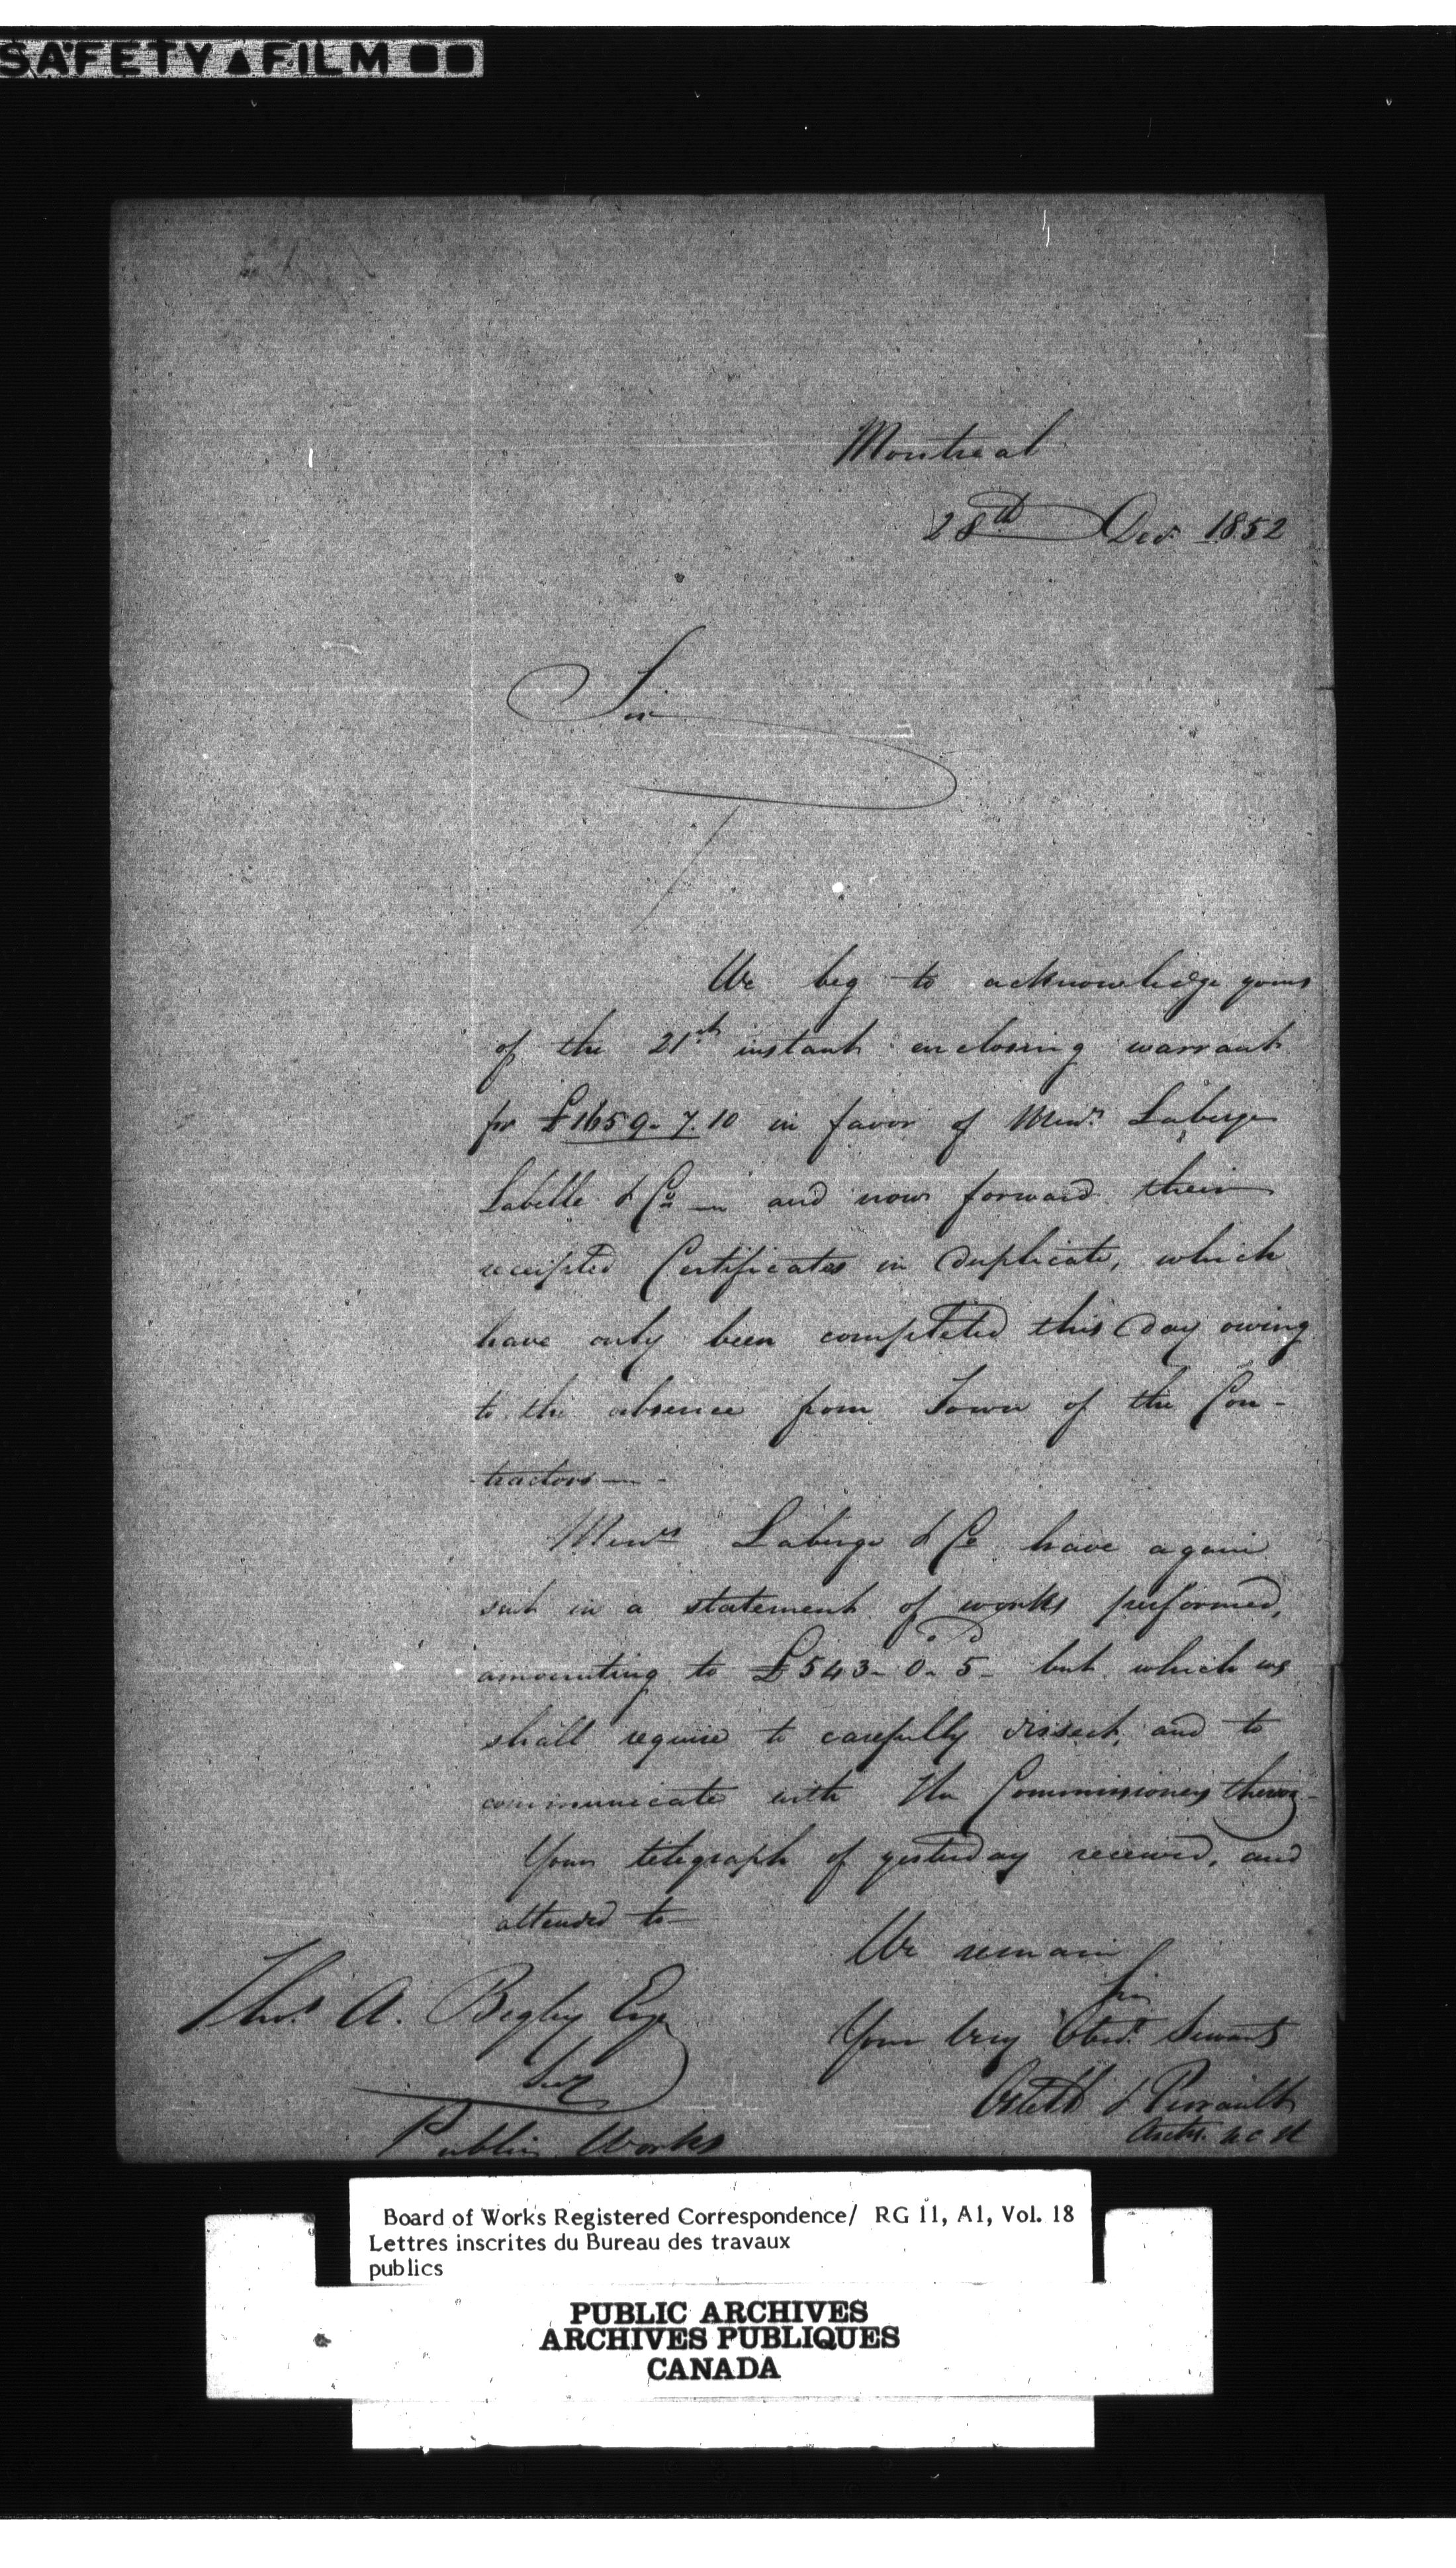 SAFETY FILM
Montreal
28th Decr. 1852
Sir
We beg to acknowledge yours
of the 21st instant enclosing warrant
for £1659. 7. 10 in favor of Messrs Laberge
Labelle & Co — and now forward their
receipted Certificates in Duplicate, which
have only been completed this Day owing
to the absence from Town of the Con-
tractors —
Messrs Laberge & Co have again
sent in a statement of works performed,
amounting to £543. 0. 5 - but which we
shall require to carefully dissect, and to
communicate with the Commissioners thereon -
Your telegraph of yesterday received, and
attended to —
We remain
Sir
Your very Obedt. Servants
Ostell & Perrault
Archts.
Thos. A. Begley Esqr
Secy
Public Works
Board of Works Registered Correspondence/ RG 11, A1, Vol. 18
Lettres inscrites du Bureau des travaux
publics
PUBLIC ARCHIVES
ARCHIVES PUBLIQUES
CANADA